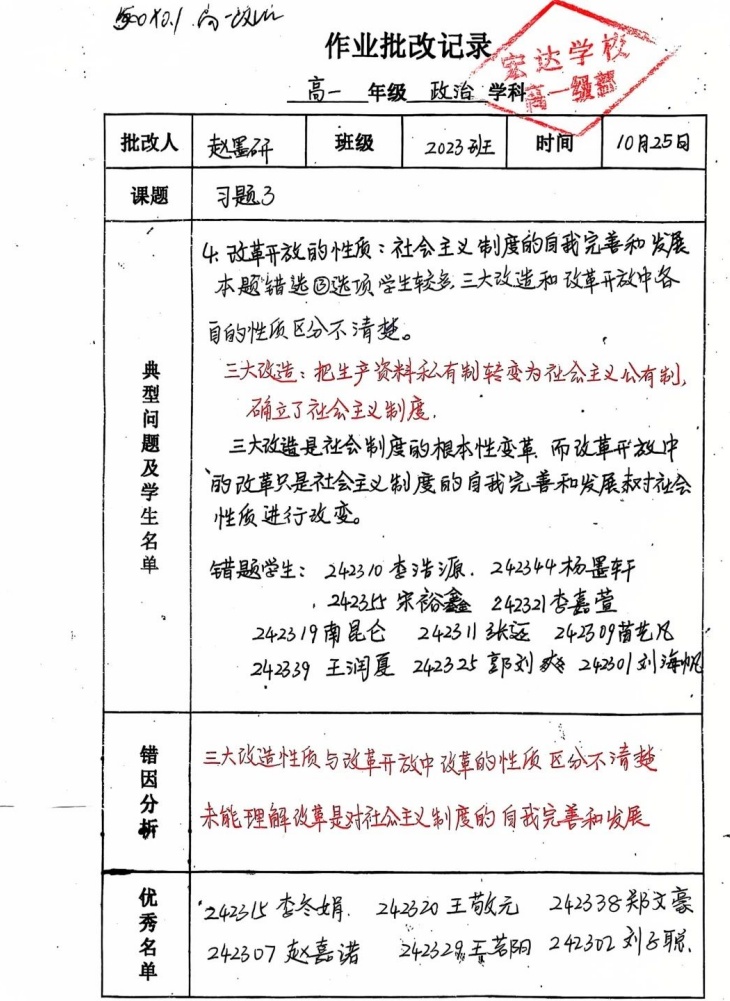 作业批改记录
宏达学校
高一级部
高一 年级 政治 学科
批改人 赵墨研 班级 2023班 时间 10月25日
课题 习题3
典型问题及学生名单
4. 改革开放的性质：社会主义制度的自我完善和发展
本题错选③选项学生较多,三大改造和改革开放中各
自的性质区分不清楚。
三大改造：把生产资料私有制转变为社会主义公有制,
确立了社会主义制度.
三大改造是社会制度的根本性变革.而改革开放中
的改革只是社会主义制度的自我完善和发展 对社会
性质进行改变。
错题学生： 242310 李浩源. 242344 杨墨轩
宋裕鑫 242321 李嘉萱
242319 南昆仑 242311 张 242309 苗艺凡
242339 王润夏 242325 郭刘爽 242301 刘海帆
错因分析
三大改造性质与改革开放中改革的性质区分不清楚
未能理解改革是对社会主义制度的自我完善和发展
优秀名单
242315 李冬娟. 242320 王敬元 242338 郑文豪
242307 赵嘉诺 242329 王若阳 242302 刘子聪.